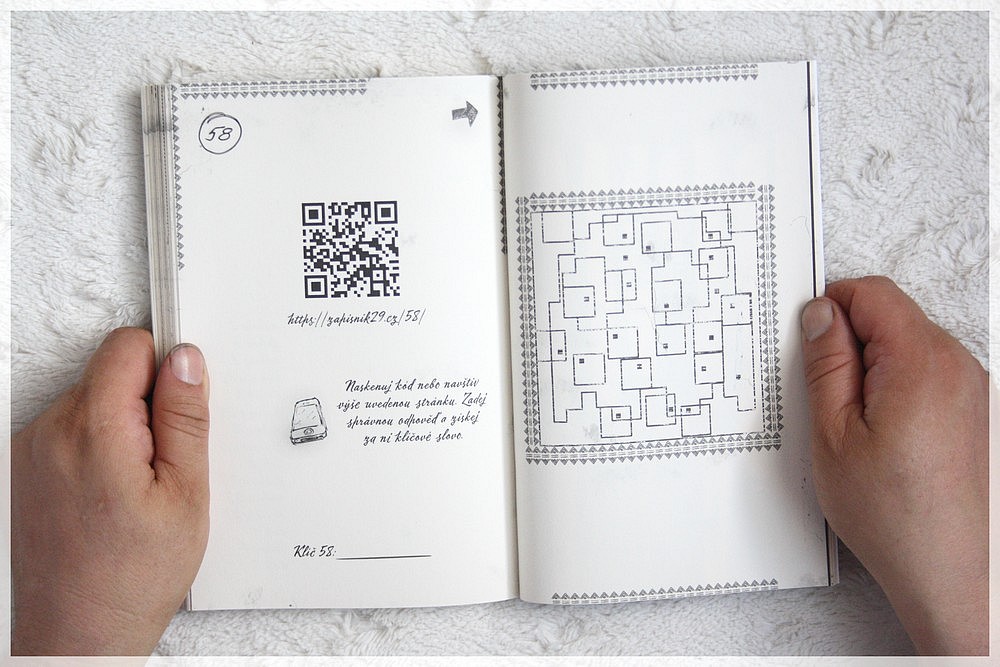 58
https://zapisnik29.cz/58/
Naskenuj kód nebo navštiv
výše uvedenou stránku. Zadej
správnou odpověď a získej
za ni klíčové slovo.
Klíč 58: